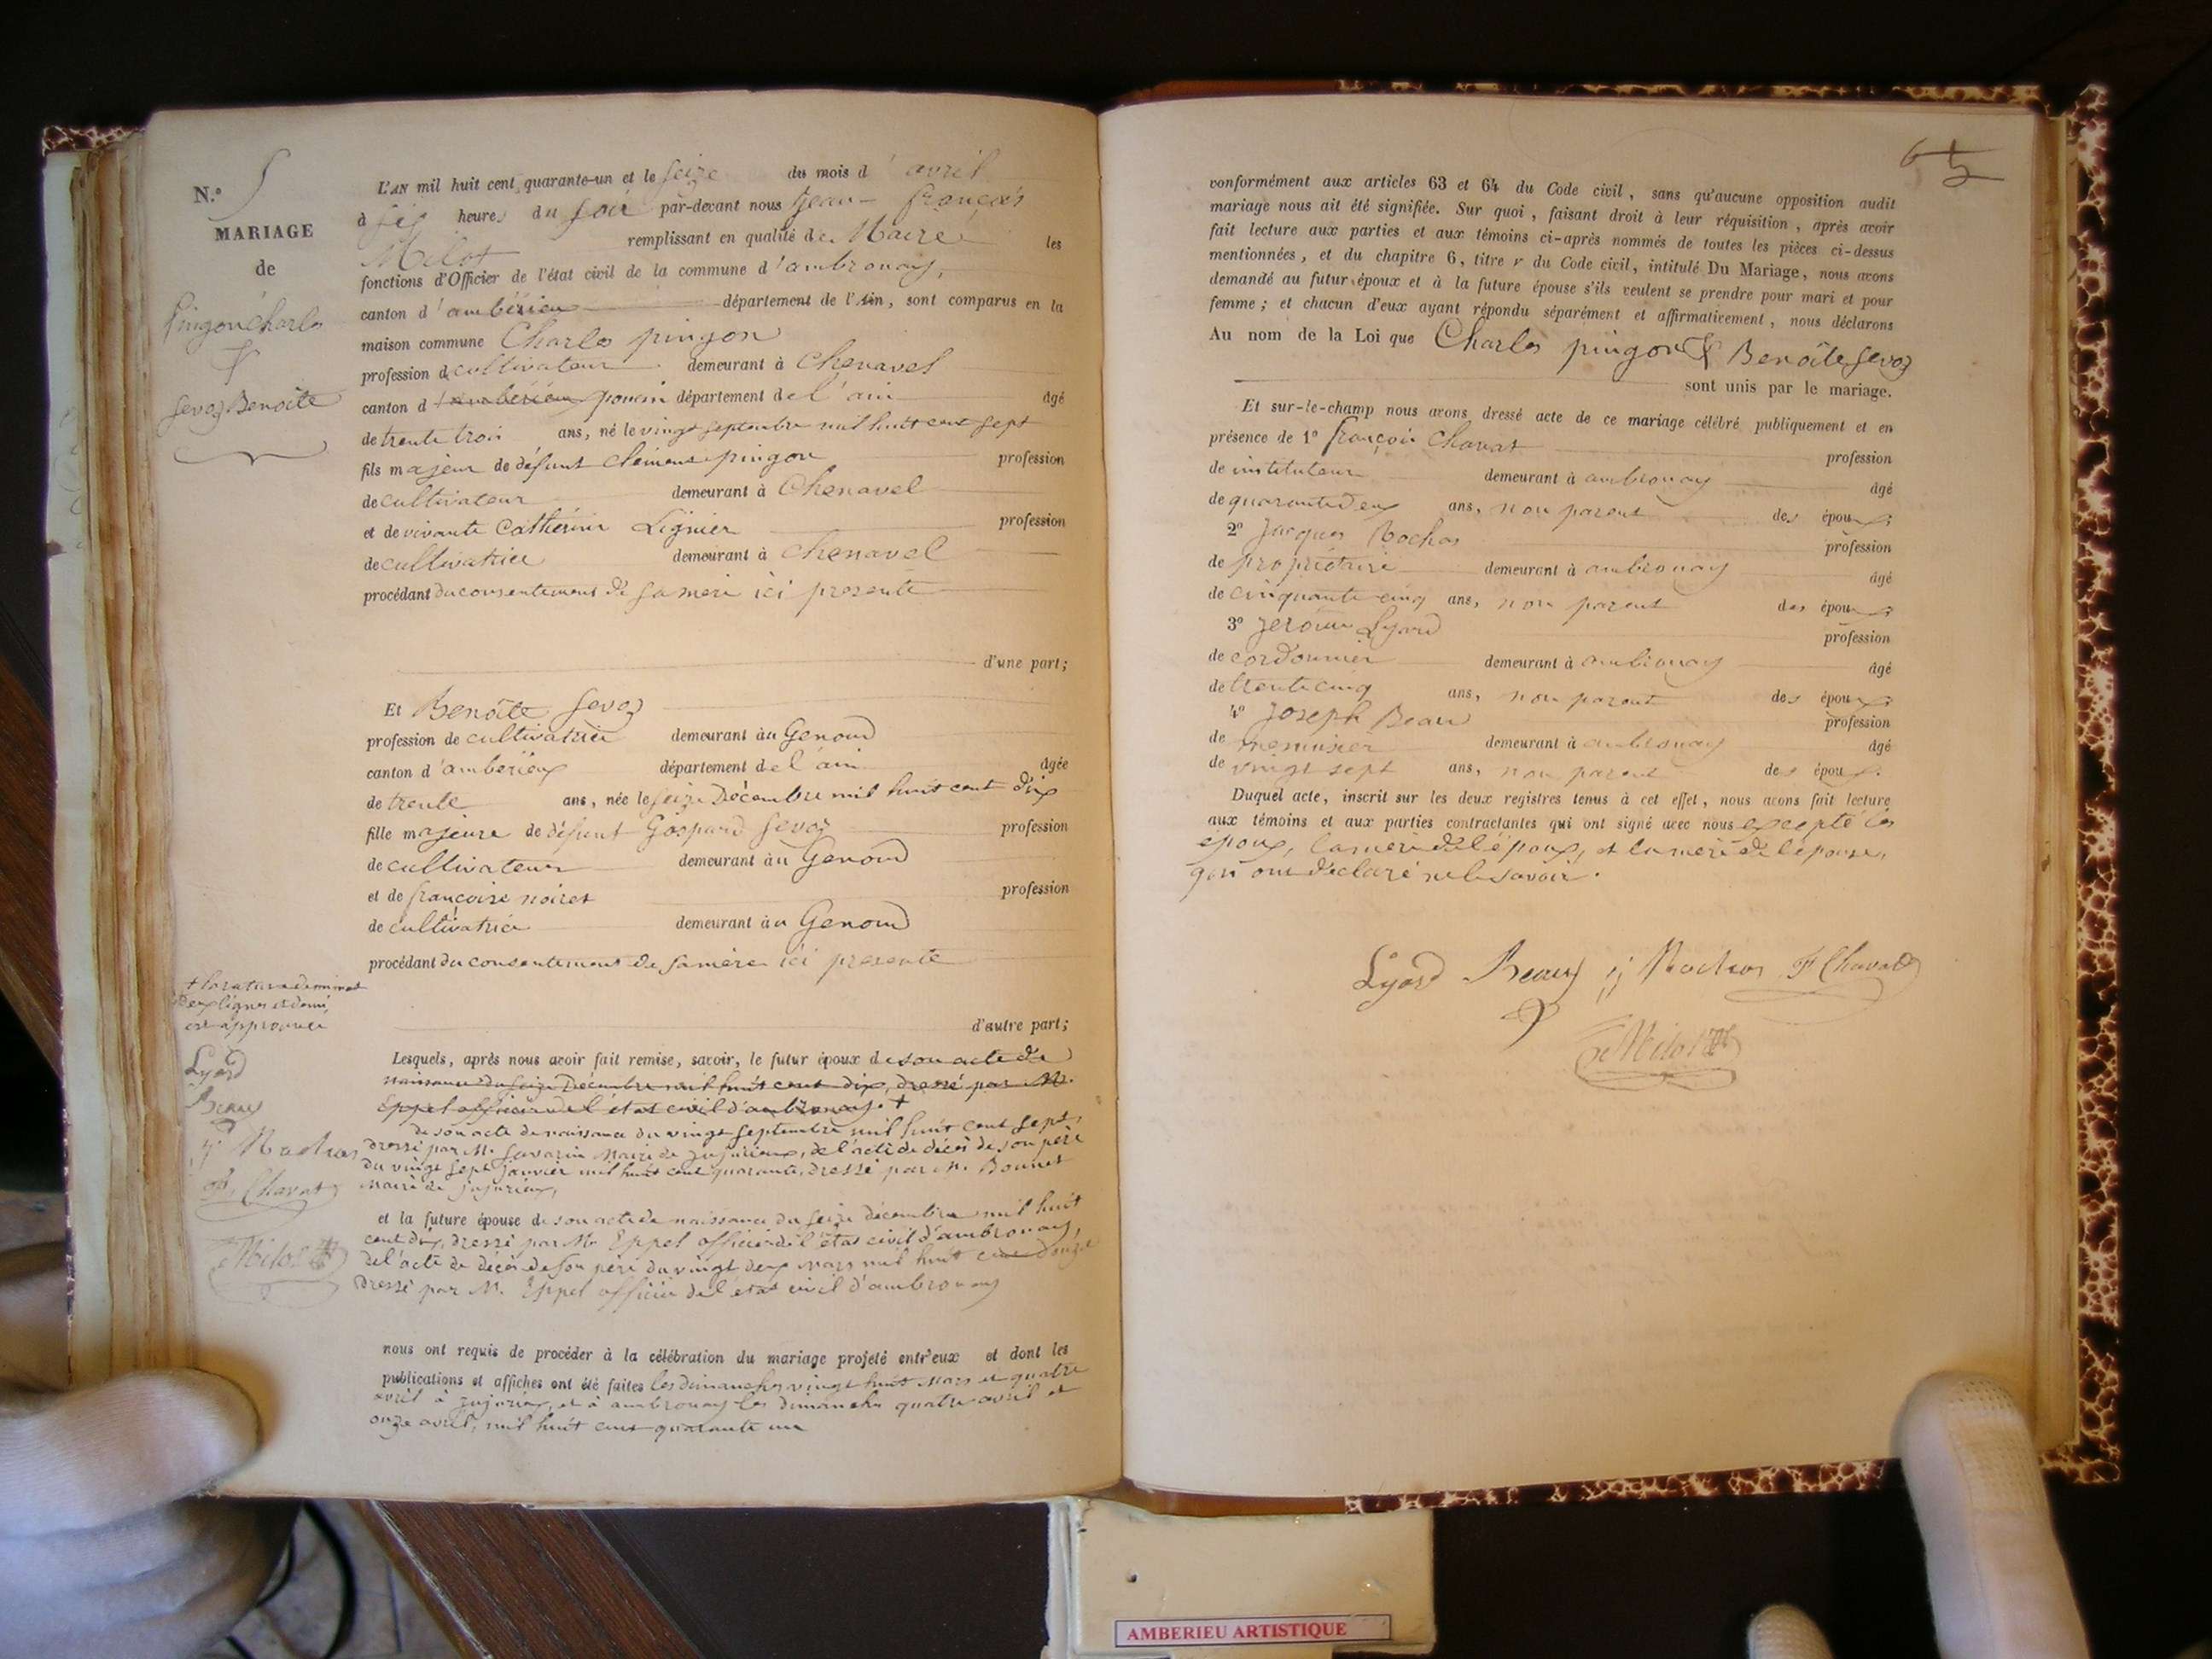 N.º 5
MARIAGE
de
Pingon Charles
&
Sevoz Benoîte
L'AN mil huit cent quarante-un et le seize du mois d'avril
à six heures du soir par-devant nous Jean-françois
Milot remplissant en qualité de Maire les
fonctions d'Officier de l'état civil de la commune d'ambronay,
canton d'ambérieux département de l'Ain, sont comparus en la
maison commune Charles pingon
profession de cultivateur demeurant à Chenavel
canton d'ambérieux poncin département de l'ain âgé
de trente trois ans, né le vingt septembre mil huit cent sept
fils majeur de défunt Clément pingon profession
de cultivateur demeurant à Chenavel
et de vivante Catherine Lignier profession
de cultivatrice demeurant à Chenavel
procédant du consentement de sa mère ici presente
d'une part;
Et Benoîte Sevoz
profession de cultivatrice demeurant au Genoud
canton d'ambérieux département de l'ain âgée
de trente ans, née le seize Décembre mil huit cent dix
fille majeure de défunt Gaspard Sevoz profession
de cultivateur demeurant au Genoud
et de françoise noiret profession
de cultivatrice demeurant au Genoud
procédant du consentement de sa mère ici presente
d'autre part;
+ la rature de
deux lignes et demi,
est approuvée
Lyard
Beau
jj Rochas
F Chavat
Milot
Lesquels, après nous avoir fait remise, savoir, le futur époux de son acte de
naissance du seize Décembre mil huit cent dix, dressé par M.
Eppel officier de l'état civil d'ambronay. +
de son acte de naissance du vingt septembre mil huit cent sept,
dressé par M. Savarin Maire de jujurieux, de l'acte de décès de son père
du vingt sept janvier mil huit cent quarante, dressé par M. Bonnet
Maire de jujurieux,
et la future épouse de son acte de naissance du seize décembre mil huit
cent dix, dressé par Mr Eppel officier de l'état civil d'ambronay,
de l'acte de décès de son père du vingt deux mars mil huit cent douze
dressé par M. Eppel officier de l'état civil d'ambronay
nous ont requis de procéder à la célébration du mariage projeté entr'eux et dont les
publications et affiches ont été faites les dimanches vingt huit mars et quatre
avril à jujurieux, et à ambronay les dimanches quatre avril et
onze avril, mil huit cent quarante un
65
conformément aux articles 63 et 64 du Code civil, sans qu'aucune opposition audit
mariage nous ait été signifiée. Sur quoi, faisant droit à leur réquisition, après avoir
fait lecture aux parties et aux témoins ci-après nommés de toutes les pièces ci-dessus
mentionnées, et du chapitre 6, titre v du Code civil, intitulé Du Mariage, nous avons
demandé au futur époux et à la future épouse s'ils veulent se prendre pour mari et pour
femme; et chacun d'eux ayant répondu séparément et affirmativement, nous déclarons
Au nom de la Loi que Charles pingon & Benoîte Sevoz
sont unis par le mariage.
Et sur-le-champ nous avons dressé acte de ce mariage célébré publiquement et en
présence de 1º françois Chavat profession
de instituteur demeurant à ambronay âgé
de quarante deux ans, non parent des époux;
2º Jacques Rochas profession
de propriétaire demeurant à ambronay âgé
de cinquante cinq ans, non parent des époux;
3º Jerôme Lyard profession
de cordonnier demeurant à ambronay âgé
de trente cinq ans, non parent des époux;
4º Joseph Beau profession
de menuisier demeurant à ambronay âgé
de vingt sept ans, non parent des époux.
Duquel acte, inscrit sur les deux registres tenus à cet effet, nous avons fait lecture
aux témoins et aux parties contractantes qui ont signé avec nous excepté les
époux, la mère de l'époux, et la mère de l'épouse,
qui ont déclaré ne le savoir.
Lyard Beau jj Rochas F Chavat
Milot
AMBERIEU ARTISTIQUE